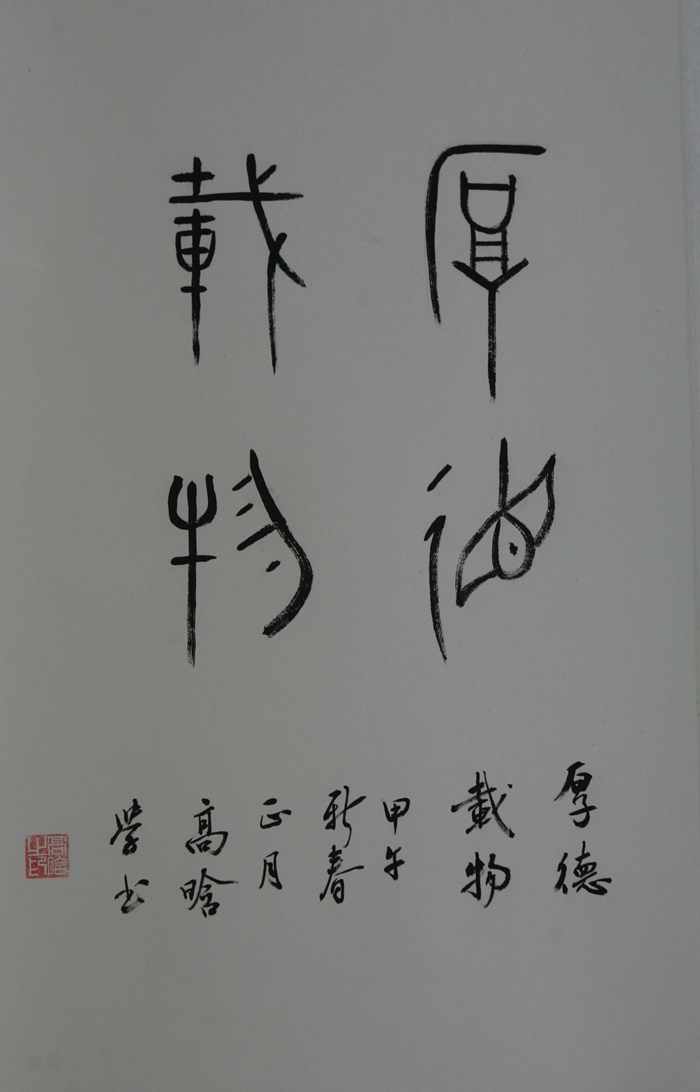 厚德
載物
厚德
載物
甲午
新春
正月
高晗
學书
高晗之印